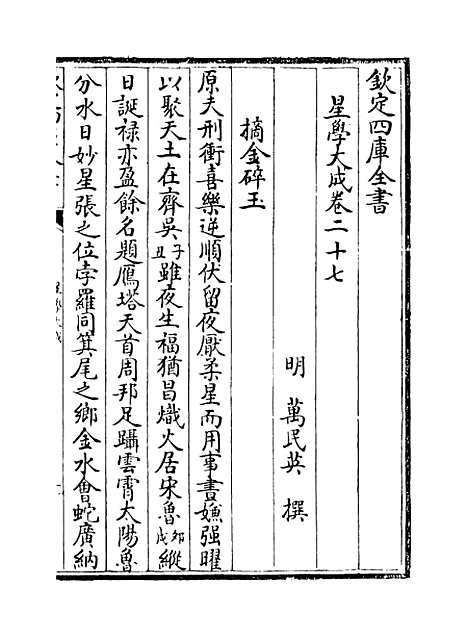 欽定四庫全書
星學大成卷二十七
明 萬民英 撰
摘金碎玉
原夫刑衝喜樂逆順伏留夜厭柔星而用事晝嫌强曜
以聚天土在齊吳子丑雖夜生福猶昌熾火居宋魯卯戌縱
日誕禄亦盈餘名題鴈塔天首周邦足躡雲霄太陽魯
分水日妙星張之位孛羅同箕尾之鄉金水會蛇廣納